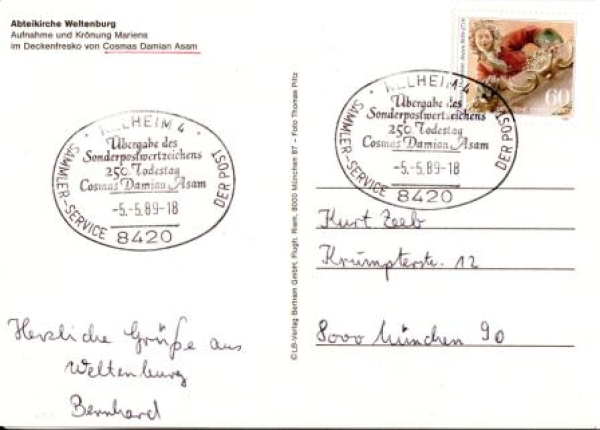 Abteikirche Weltenburg
Aufnahme und Krönung Mariens
im Deckenfresko von Cosmas Damian Asam
KELHEIM 4
Übergabe des
Sonderpostwertzeichens
250. Todestag
Cosmas Damian Asam
-5.-5.89-18
8420
SAMMLER-SERVICE DER POST
KELHEIM 4
Übergabe des
Sonderpostwertzeichens
250. Todestag
Cosmas Damian Asam
-5.-5.89-18
8420
SAMMLER-SERVICE DER POST
60
© LB-Verlag Bertram GmbH, Flugh. Riem, 8000 München 87 – Foto Thomas Piltz
Kurt Zeeb
Krumpterstr. 12
8000 München 90
Herzliche Grüße aus
Weltenburg
Bernhard